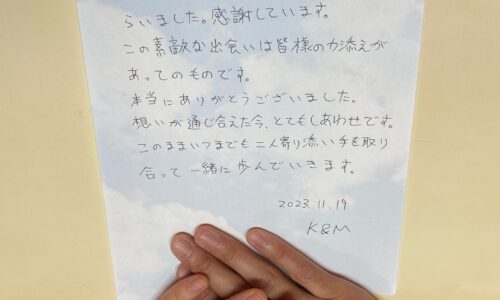 らいました。感謝しています。
この素敵な出会いは皆様の力添えが
あってのものです。
本当にありがとうございました。
想いが通じ合えた今、とてもしあわせです。
このままいつまでも二人寄り添い手を取り
合って一緒に歩んでいきます。
2023.11.19
K&M